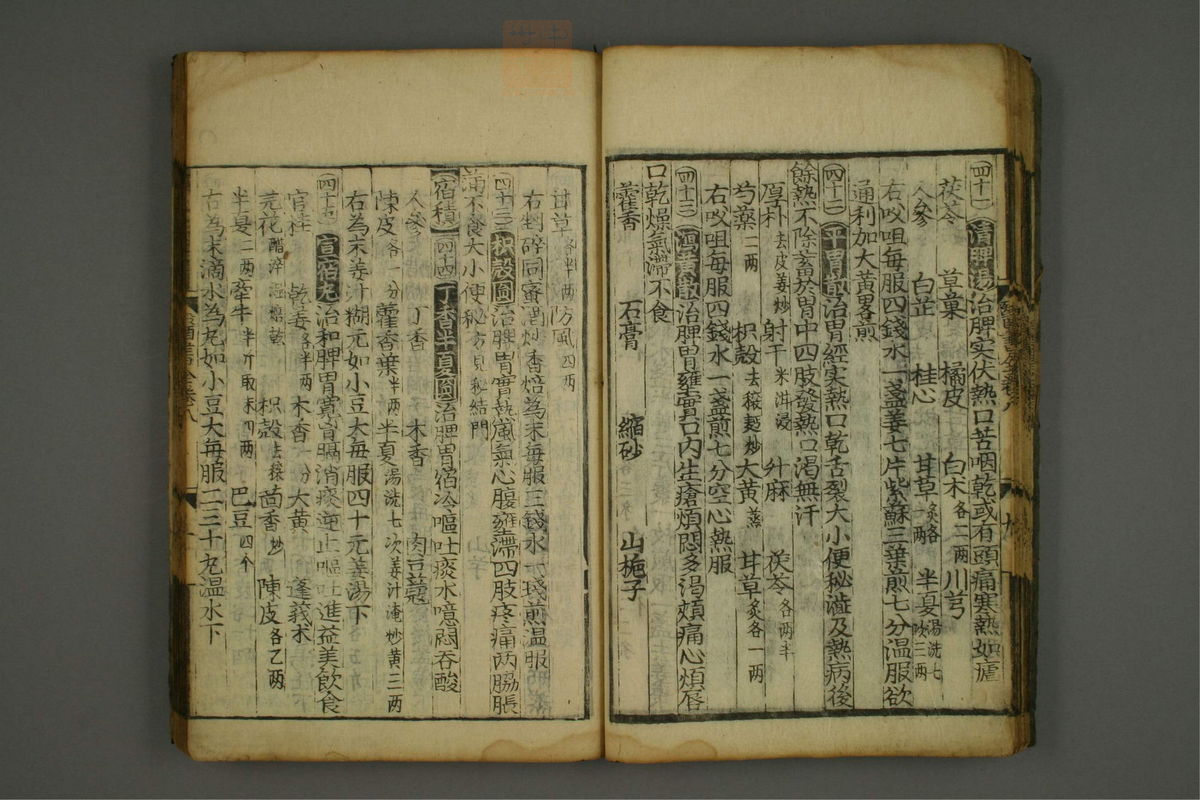 四十一 清脾湯治脾実伏熱口苦咽乾或有頭痛寒熱如瘧
茯苓 草菓 橘皮 白术各二兩 川芎
人參 白芷 桂心 甘草炙各一兩 半夏湯洗七次三兩
右㕮咀每服四錢水一盞姜七片紫蘇三葉煎七分温服欲
通利加大黃畧煎
四十二 平胃散治胃經实熱口乾舌裂大小便秘澁及熱病後
餘熱不除蓄於胃中四肢發熱口渴無汗
厚朴去皮姜炒 射干米泔浸 升麻 茯苓各兩半
芍藥二兩 枳殼去穰麸炒 大黃蒸 甘草炙各一兩
右㕮咀每服四錢水一盞煎七分空心熱服
四十三 瀉黃散治脾胃壅實口内生瘡煩悶多渴頰痛心煩唇
口乾燥氣滯不食
藿香 石膏 縮砂 山梔子
甘草各半兩 防風四兩
右剉碎同蜜酒炒香焙為末每服三錢水一琖煎温服
四十三 枳殼圓治脾胃實熱氣心腹壅滯四肢疼痛两脇脹
滿不食大小便秘方見秘結門
宿積 四十四 丁香半夏圓治脾胃宿冷嘔吐痰水噫悶吞酸
人參 丁香 木香 肉豆蔻
陳皮各一分 藿香葉半两 半夏湯洗七次姜汁淹炒黃三两
右為末姜汁糊元如小豆大每服四十元姜湯下
宣宿丸治和脾胃實胃膈消痰逆止嘔吐進益美飲食
官桂 乾姜各半两 木香一分 大黃 蓬莪术
芫花醋淬湿焙乾 枳殼去穰 茴香炒 陳皮各乙两
半夏二两 牵牛半斤取末四两 巴豆四个
右為末滴水為丸如小豆大每服二三十丸温水下